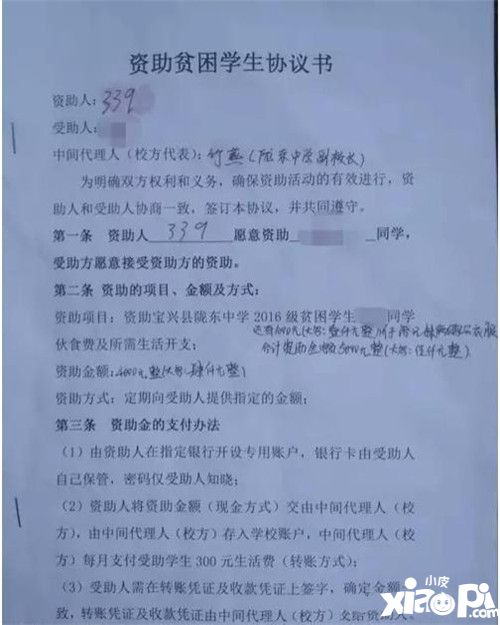 资助贫困学生协议书
资助人：339
受助人：
中间代理人（校方代表）：竹燕（陇东中学副校长）
为明确双方权利和义务，确保资助活动的有效进行，资
助人和受助人协商一致，签订本协议，并共同遵守。
第一条 资助人 339 愿意资助 同学，
受助方愿意接受资助方的资助。
第二条 资助的项目、金额及方式：
资助项目：资助宝兴县陇东中学 2016 级贫困学生 同学
伙食费及所需生活开支；
合计资助金额5000元整（大写：伍仟元整）
资助金额：4000元整（大写：肆仟元整）
资助方式：定期向受助人提供指定的金额；
第三条 资助金的支付办法
（1）由资助人在指定银行开设专用账户，银行卡由受助人
自己保管，密码仅受助人知晓；
（2）资助人将资助金额（现金方式）交由中间代理人（校
方），由中间代理人（校方）存入学校账户，中间代理人（校
方）每月支付受助学生 300 元生活费（转账方式）；
（3）受助人需在转账凭证及收款凭证上签字，确定金额
致，转账凭证及收款凭证由中间代理人（校方）交给资助人。
小皮
xiaopi.com